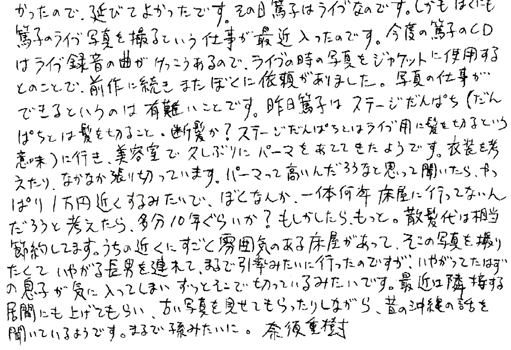 かったので、延びてよかったです。その日篤子はライブなのです。しかもぼくにも
篤子のライブ写真を撮るという仕事が最近入ったのです。今度の篤子のCD
はライブ録音の曲がけっこうあるので、ライヴの時の写真をジャケットに使用する
とのことで、前作に続きまたぼくに依頼がありました。写真の仕事が
できるというのは有難いことです。昨日篤子はステージだんぱち(だん
ぱちとは髪を切ること。断髪か?ステージだんぱちとはライブ用に髪を切るという
意味)に行き、美容室で久しぶりにパーマをあててきたようです。衣装を考
えたり、なかなか張り切っています。パーマって高いんだろうなと思って聞いたら、やっ
ぱり1万円近くするみたいで、ぼくなんか、一体何年床屋に行ってないん
だろうと考えたら、多分10年ぐらいか?もしかしたら、もっと。散髪代は相当
節約してます。うちの近くにすごく雰囲気のある床屋があって、そこの写真を撮り
たくて いやがる長男を連れて、まるで引率みたいに行ったのですが、いやがってたはず
の息子が気に入ってしまい ずっとそこで切っているみたいです。最近は隣接する
居間にも上げてもらい、古い写真を見せてもらったりしながら、昔の沖縄の話を
聞いているようです。まるで孫みたいに。 奈須重樹